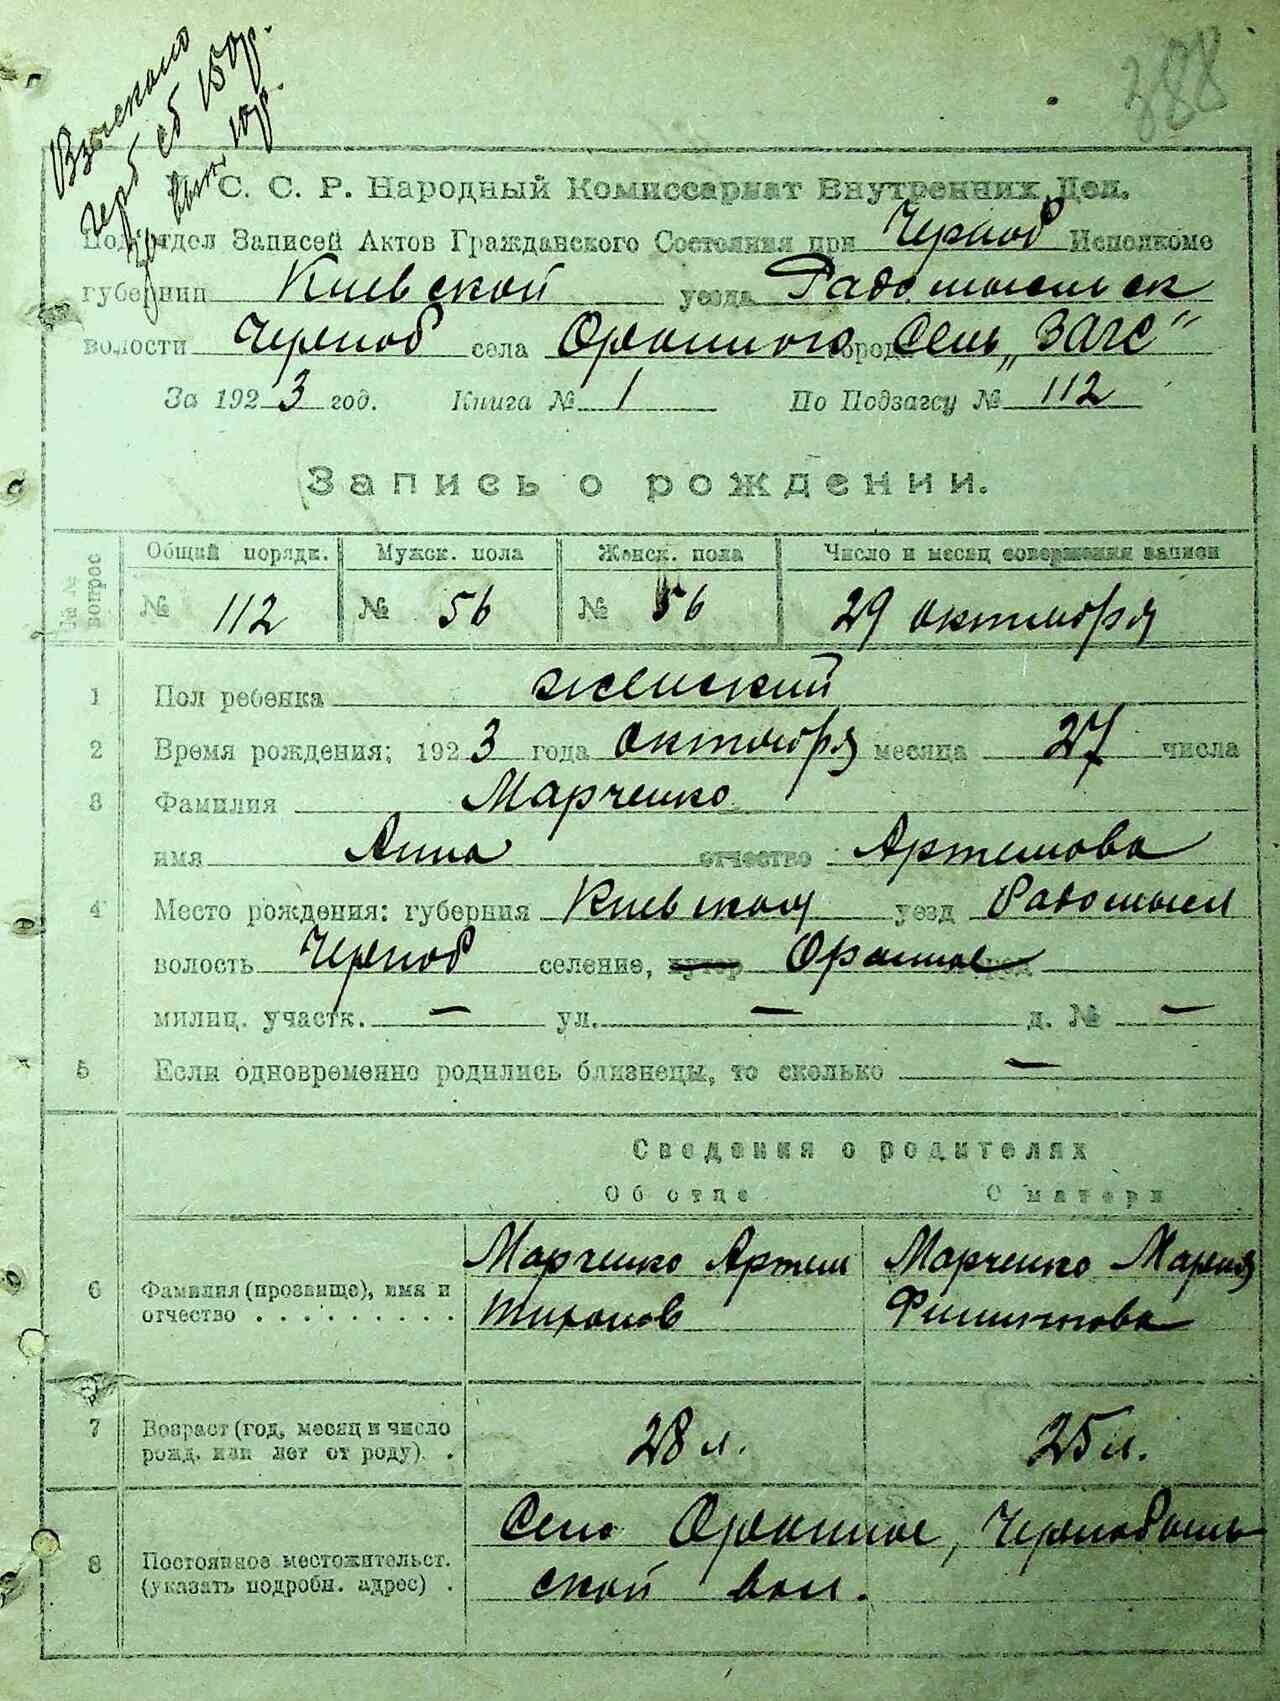 388
Взыскано
герб сб 150р.
за бын 10р.
У. С. С. Р. Народный Комиссариат Внутренних Дел.
Подотдел Записей Актов Гражданского Состояния при Черноб Исполкоме
губернии Киевской уезда Радомысльск
волости Черноб села Оранного город Сель „ЗАГС"
За 1923 год. Книга № 1 По Подзагсу № 112
Запись о рождении.
№№ вопрос
Общий порядк. Мужск. пола Женск. пола Число и месяц совершения записи
№ 112 № 56 № 56 29 октября
1 Пол ребенка женский
2 Время рождения; 1923 года октября месяца 27 числа
3 Фамилия Марченко
имя Анна отчество Артемова
4 Место рождения: губерния Киевская уезд Радомысл
волость Черноб селение, хутор Оранное
милиц. участк. — ул. — д. № —
5 Если одновременно родились близнецы, то сколько —
Сведения о родителях
Об отце О матери
Марченко Артем Марченко Мария
6 Фамилия (прозвище), имя и
отчество . . . . . . . . . Тихонов Филиппова
7 Возраст (год, месяц и число
рожд. или лет от роду) . 28 л. 25 л.
Село Оранное, Чернобыль
8 Постоянное местожительст.
(указать подробн. адрес) . ской вол.